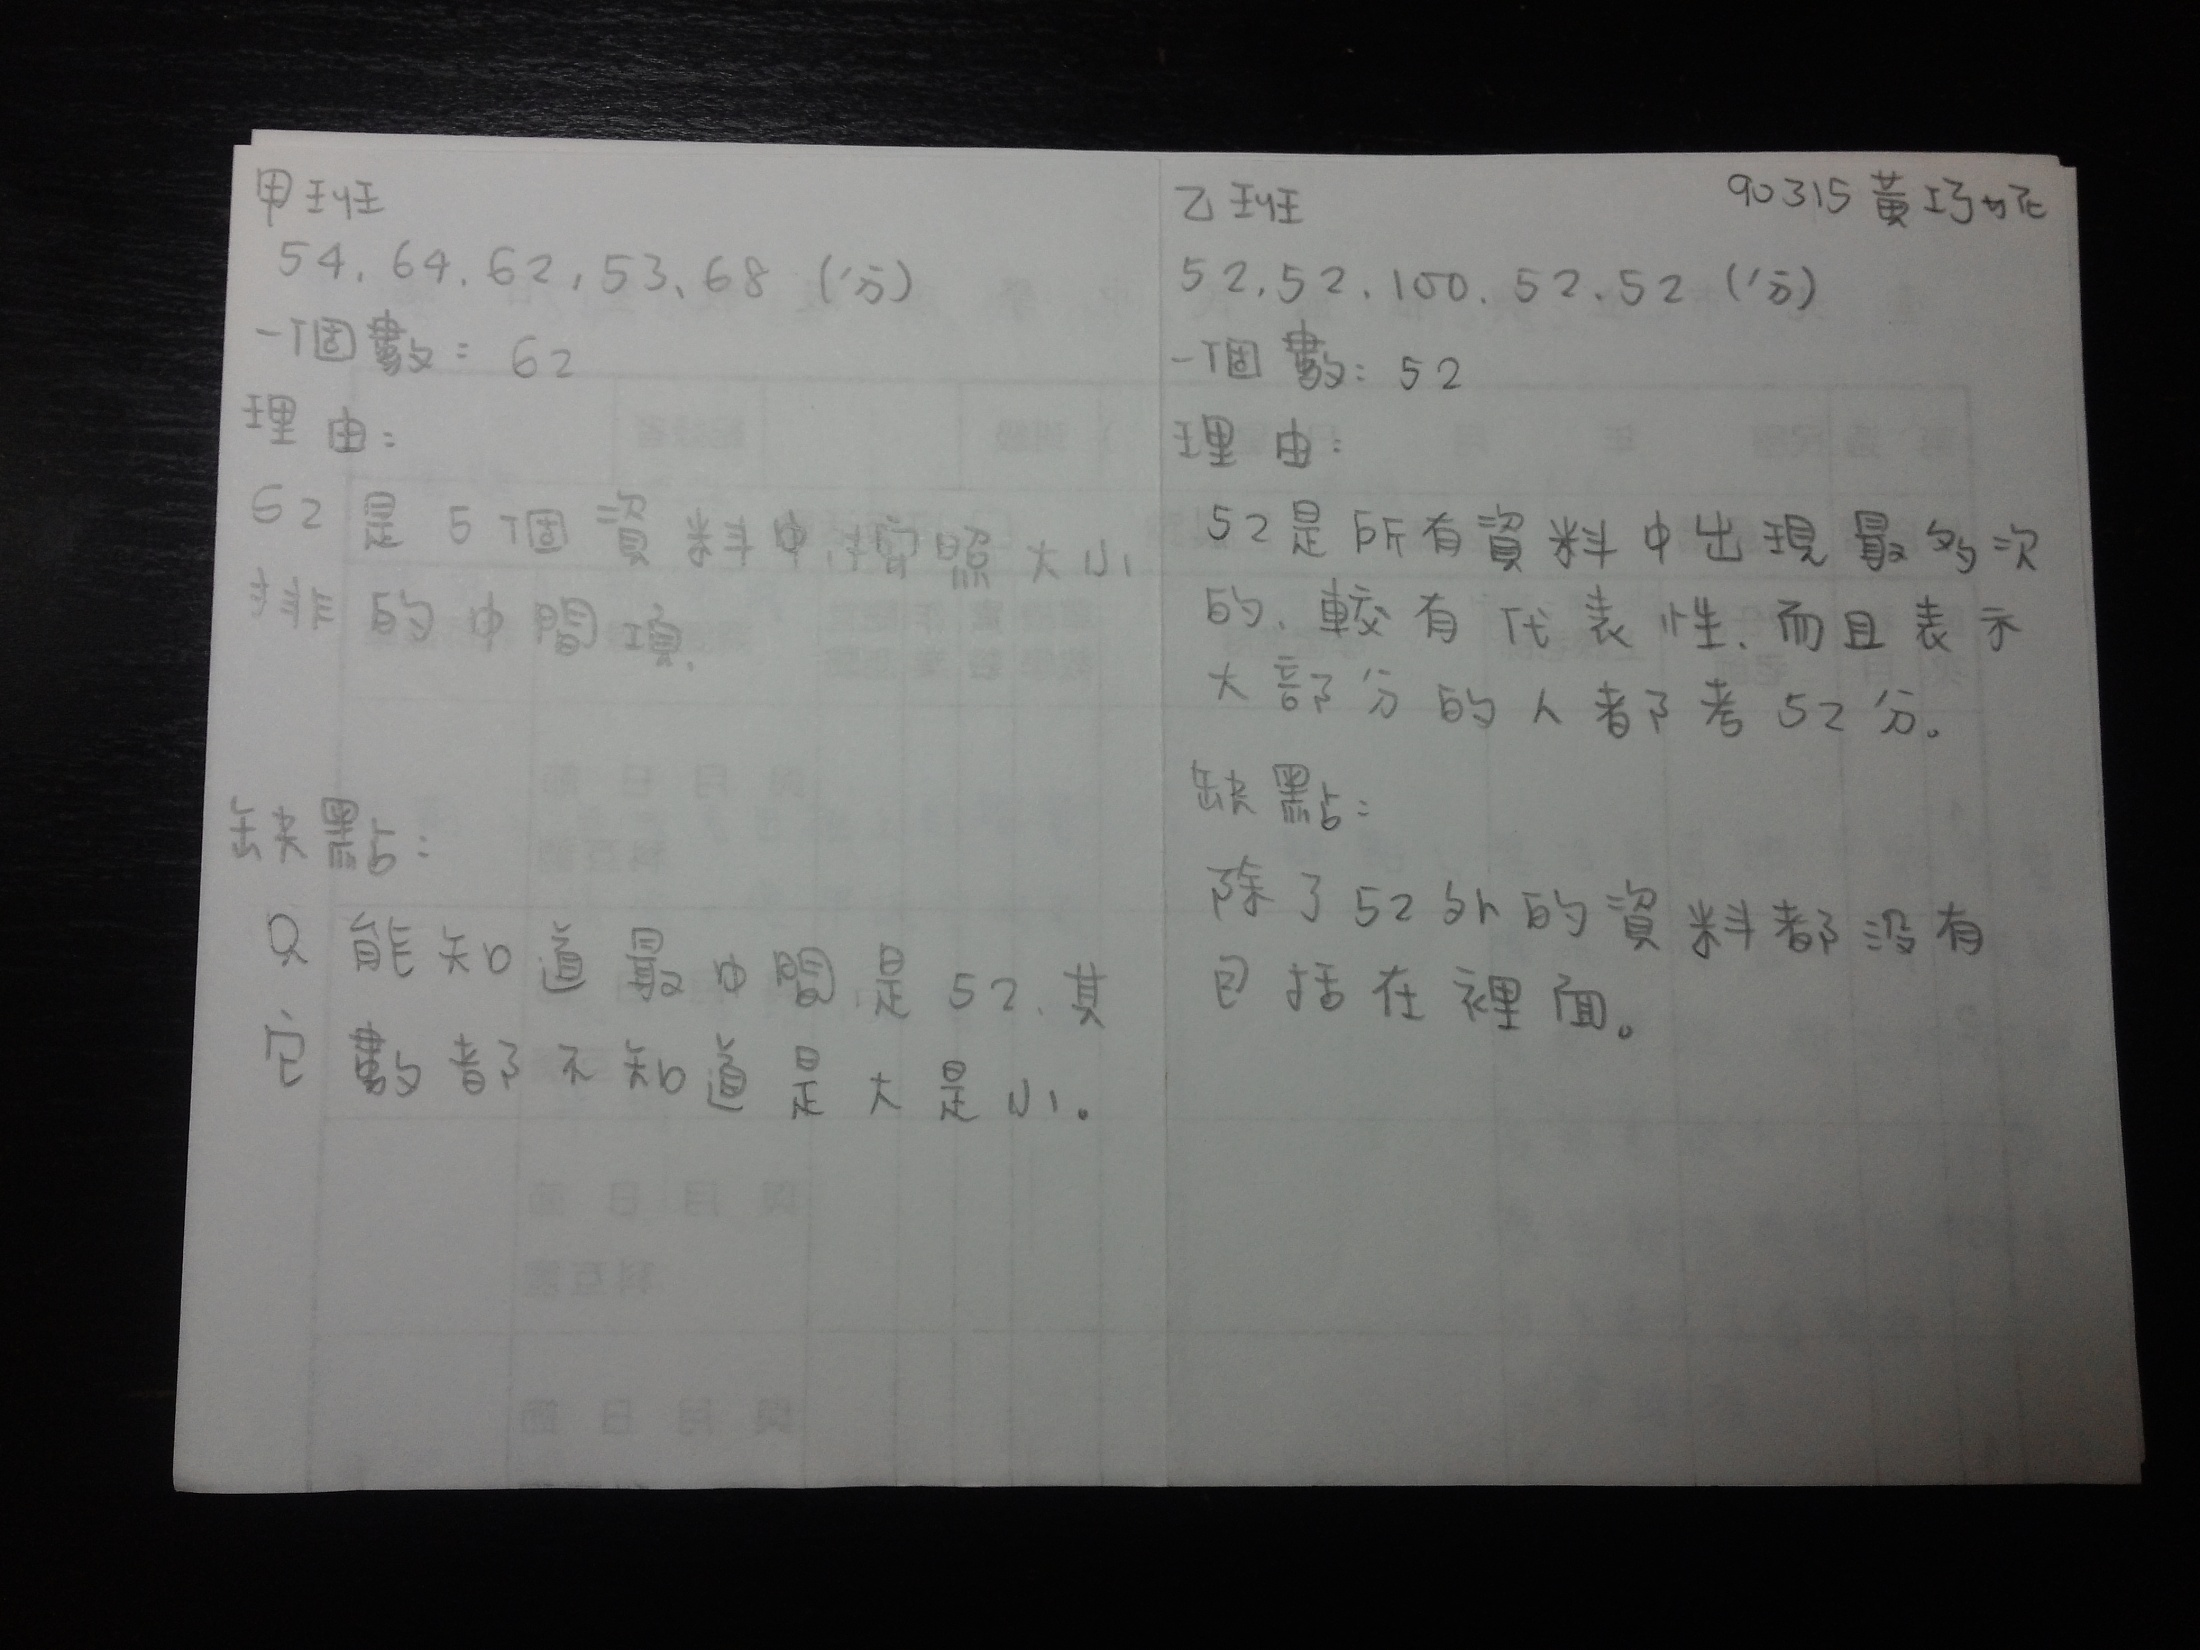 甲班
54、64、62、53、68 (分)
一個數：62
理由：
62 是 5個資料中,按照大小
排的中間項.
缺點：
只能知道最中間是52、其
它數都不知道是大是小。
乙班
90315 黃巧妮
52、52、100、52、52 (分)
一個數：52
理由：
52是所有資料中出現最多次
的、較有代表性、而且表示
大部分的人都考52分。
缺點：
除了52外的資料都沒有
包括在裡面。